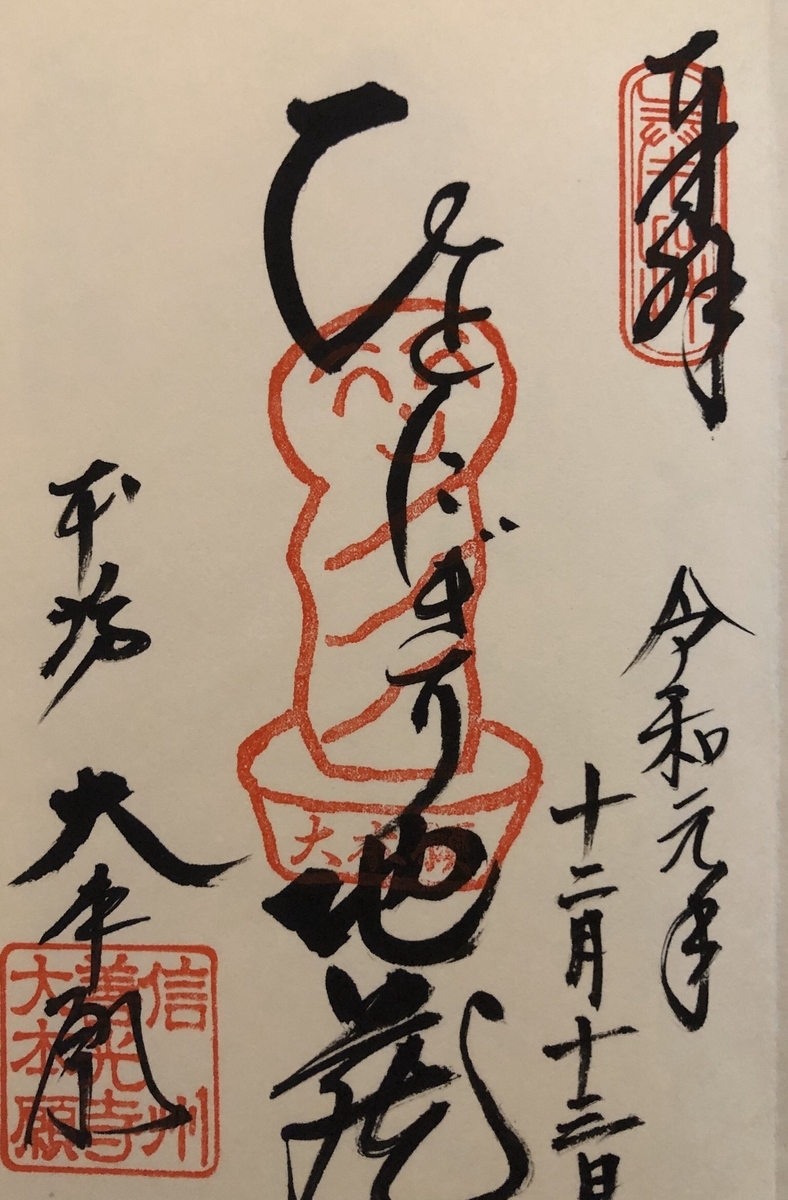 奉拝
令和元年
十二月十三日
ひとにぎり地蔵
大本願
本坊
大本願
信州
善光寺
大本願